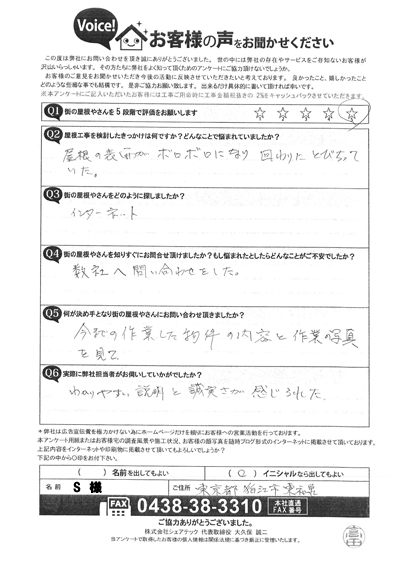 Voice!
お客様の声をお聞かせください
この度は弊社にお問い合わせを頂き誠にありがとうございました。世の中には弊社の存在やサービスをご存知ないお客様が
沢山いらっしゃいます。その方たちに弊社をよく知って頂くためのアンケートにご協力頂けないでしょうか。
お客様のご意見をお聞かせいただき今後の活動に反映させていただきたいと考えております。良かったこと、嬉しかったこと
どのような些細な事でも結構です。是非ご協力お願い致します。出来るだけ具体的に書いて頂ければ幸いです。
※本アンケートにご記入いただいたお客様には工事ご用命時に工事金額税抜きの2%をキャッシュバックさせていただきます。
Q1 街の屋根やさんを5段階で評価をお願いします ☆ ☆ ☆ ☆ ☆
Q2 屋根工事を検討したきっかけは何ですか?どんなことで悩まれていましたか?
屋根の表面がボロボロになり 回りにとびちって
いた。
Q3 街の屋根やさんをどのように探しましたか?
インターネット
Q4 街の屋根やさんを知りすぐにお問合せ頂けましたか?もし悩まれたとしたらどんなことがご不安でしたか?
数社へ問い合わせをした。
Q5 何が決め手となり街の屋根やさんにお問い合わせ頂きましたか?
今までの作業した物件の内容と作業の写真
を見て
Q6 実際に弊社担当者がお伺いしていかがでしたか?
わかりやすい説明と誠実さが感じられた。
*弊社は広告宣伝費を極力かけない為にホームページだけを頼りにお客様への営業活動を行っております。
本アンケート用紙またはお客様宅の調査風景や施工状況、お客様の顔写真を随時ブログ形式のインターネットに掲載させて頂いております。
上記内容をインターネットや印刷物に掲載させて頂いてもよろしいでしょうか?
下記の中から○印をお付け下さい。
( ) 名前を出してもよい ( ○ ) イニシャルなら出してもよい
名前 S 様 ご住所 東京都狛江市東和泉
FAX 0438-38-3310 本社直通 FAX番号
ご協力ありがとうございました。
株式会社シェアテック 代表取締役 大久保 誠二
当アンケートで取得したお客様の個人情報は関係法規に基づき厳正に管理いたします。